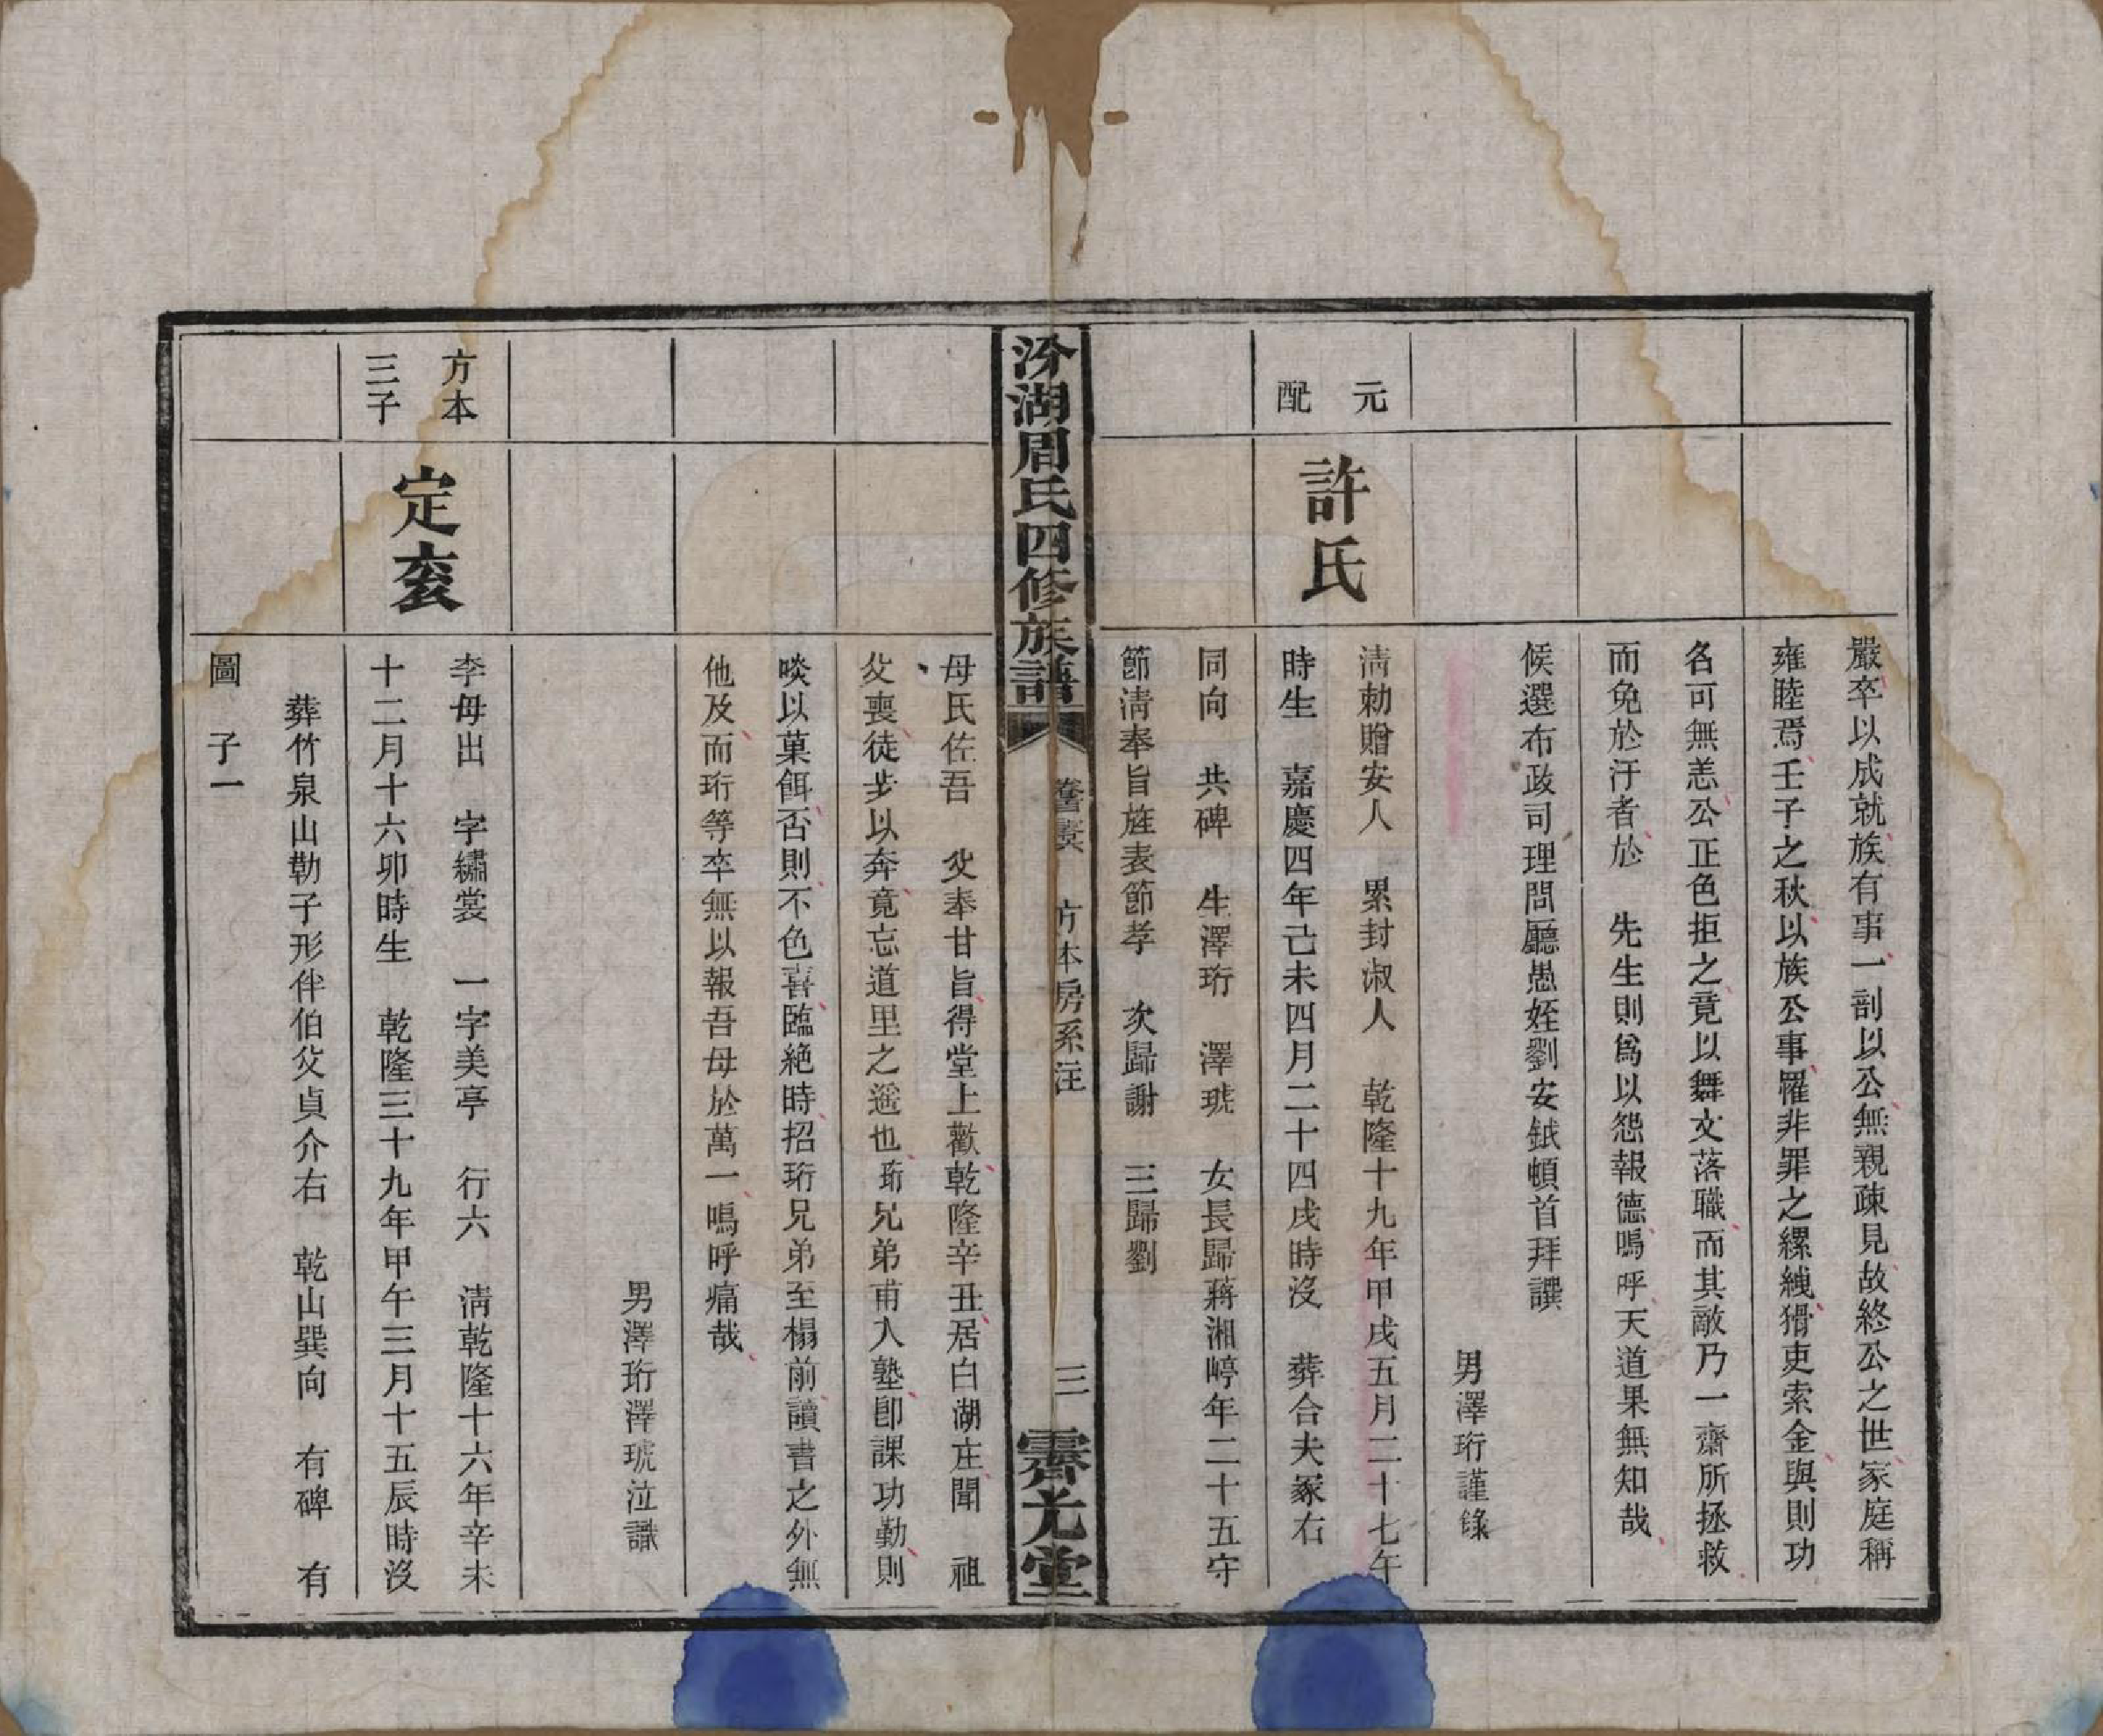 嚴卒以成就族有事一剖以公無親疎見故終公之世家庭稱
雍睦焉壬子之秋以族公事罹非罪之縲絏猾吏索金與則功
名可無恙公正色拒之竟以舞文落職而其敵乃一齋所拯救
而免於汙者於 先生則爲以怨報德嗚呼天道果無知哉
候選布政司理問廳愚姪劉安鉞頓首拜譔
男澤珩謹錄
元配
許氏
清勅贈安人 累封淑人 乾隆十九年甲戌五月二十七午
時生 嘉慶四年己未四月二十四戌時沒 葬合夫冢右
同向 共碑 生澤珩 澤琥 女長歸蔣湘崢年二十五守
節清奉旨旌表節孝 次歸謝 三歸劉
汾湖周氏四修族譜
方本房系注
三
霽光堂
母氏佐吾 父奉甘旨得堂上歡乾隆辛丑居白湖庄聞 祖
父喪徒步以奔竟忘道里之遥也珩兄弟甫入塾卽課功勤則
啖以菓餌否則不色喜臨絶時招珩兄弟至榻前讀書之外無
他及而珩等卒無以報吾母於萬一嗚呼痛哉
男澤珩澤琥泣識
方本
三子
定袤
李母出 字繡裳 一字美亭 行六 清乾隆十六年辛未
十二月十六卯時生 乾隆三十九年甲午三月十五辰時沒
葬竹泉山勒子形伴伯父貞介右 乾山巽向 有碑 有
圖 子一